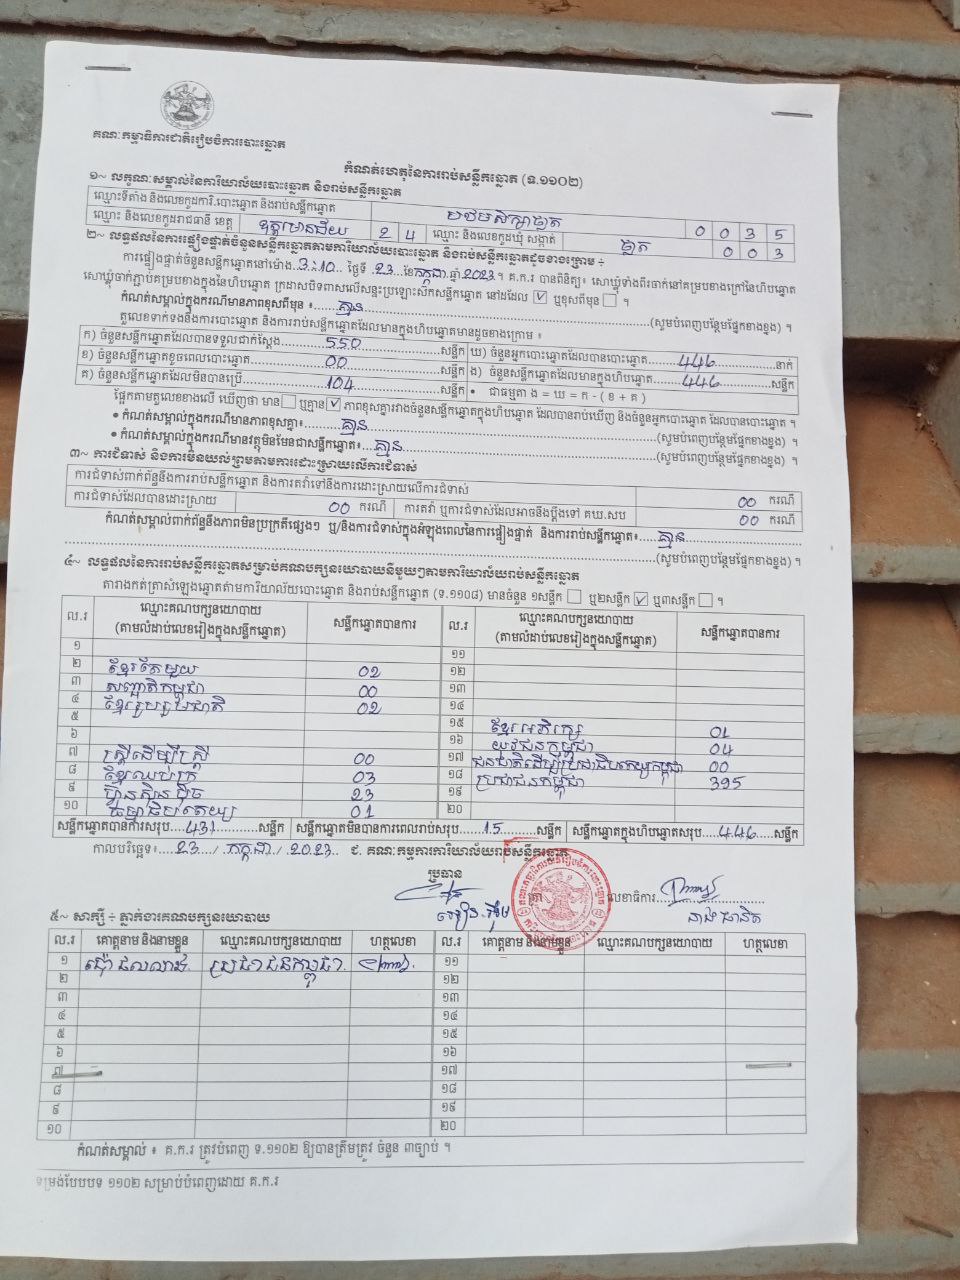 គណៈកម្មាធិការជាតិរៀបចំការបោះឆ្នោត
កំណត់ហេតុនៃការរាប់សន្លឹកឆ្នោត (ទ.១១០២)
១~ លក្ខណៈសម្គាល់នៃការិយាល័យបោះឆ្នោត និងរាប់សន្លឹកឆ្នោត
ឈ្មោះទីតាំង និងលេខកូដការិ.បោះឆ្នោត និងរាប់សន្លឹកឆ្នោត បឋមសិក្សាធ្លាត 0 0 3 5
ឈ្មោះ និងលេខកូដរាជធានី ខេត្ត ឧត្តរមានជ័យ 2 4 ឈ្មោះ និងលេខកូដឃុំ សង្កាត់ ធ្លាត 0 0 3
២~ លទ្ធផលនៃការផ្ទៀងផ្ទាត់ចំនួនសន្លឹកឆ្នោតតាមការិយាល័យបោះឆ្នោត និងរាប់សន្លឹកឆ្នោតដូចខាងក្រោម ÷
ការផ្ទៀងផ្ទាត់ចំនួនសន្លឹកឆ្នោតនៅម៉ោង 3:10 ថ្ងៃទី 23 ខែ កក្កដា ឆ្នាំ 2023 ។ គ.ក.រ បានពិនិត្យ៖ សោឃ្លុំទាំងពីរចាក់នៅគម្របខាងក្រៅនៃហិបឆ្នោត
សោឃ្លុំចាក់ភ្ជាប់គម្របខាងក្នុងនៃហិបឆ្នោត ក្រដាសបិទពាសលើសន្ទះប្រឡោះស៊កសន្លឹកឆ្នោត នៅដដែល ☑ ឬខុសពីមុន ☐ ។
កំណត់សម្គាល់ក្នុងករណីមានភាពខុសពីមុន ៖ គ្មាន (សូមបំពេញបន្ថែមផ្នែកខាងខ្នង) ។
តួលេខទាក់ទងនឹងការបោះឆ្នោត និងការរាប់សន្លឹកឆ្នោតដែលមានក្នុងហិបឆ្នោតមានដូចខាងក្រោម ៖
ក) ចំនួនសន្លឹកឆ្នោតដែលបានទទួលជាក់ស្តែង 550 សន្លឹក ឃ) ចំនួនអ្នកបោះឆ្នោតដែលបានបោះឆ្នោត 446 នាក់
ខ) ចំនួនសន្លឹកឆ្នោតខូចពេលបោះឆ្នោត 00 សន្លឹក ង) ចំនួនសន្លឹកឆ្នោតដែលមានក្នុងហិបឆ្នោត 446 សន្លឹក
គ) ចំនួនសន្លឹកឆ្នោតដែលមិនបានប្រើ 104 សន្លឹក • ជាធម្មតា ង = ឃ = ក - ( ខ + គ )
ផ្អែកតាមតួលេខខាងលើ ឃើញថា មាន ☐ ឬគ្មាន ☑ ភាពខុសគ្នារវាងចំនួនសន្លឹកឆ្នោតក្នុងហិបឆ្នោត ដែលបានរាប់ឃើញ និងចំនួនអ្នកបោះឆ្នោត ដែលបានបោះឆ្នោត ។
• កំណត់សម្គាល់ក្នុងករណីមានភាពខុសគ្នា៖ គ្មាន (សូមបំពេញបន្ថែមផ្នែកខាងខ្នង) ។
• កំណត់សម្គាល់ក្នុងករណីមានវត្ថុមិនមែនជាសន្លឹកឆ្នោត៖ គ្មាន (សូមបំពេញបន្ថែមផ្នែកខាងខ្នង) ។
៣~ ការជំទាស់ និងការមិនយល់ព្រមតាមការដោះស្រាយលើការជំទាស់
ការជំទាស់ពាក់ព័ន្ធនឹងការរាប់សន្លឹកឆ្នោត និងការតវ៉ាទៅនឹងការដោះស្រាយលើការជំទាស់ 00 ករណី
ការជំទាស់ដែលបានដោះស្រាយ 00 ករណី ការតវ៉ា ឬការជំទាស់ដែលអាចនឹងប្តឹងទៅ គឃ.សប 00 ករណី
កំណត់សម្គាល់ពាក់ព័ន្ធនឹងភាពមិនប្រក្រតីផ្សេងៗ ឬ/និងការជំទាស់ក្នុងអំឡុងពេលនៃការផ្ទៀងផ្ទាត់ និងការរាប់សន្លឹកឆ្នោត៖ គ្មាន
(សូមបំពេញបន្ថែមផ្នែកខាងខ្នង) ។
៤~ លទ្ធផលនៃការរាប់សន្លឹកឆ្នោតសម្រាប់គណបក្សនយោបាយនីមួយៗតាមការិយាល័យរាប់សន្លឹកឆ្នោត
តារាងកត់ត្រាសំឡេងឆ្នោតតាមការិយាល័យបោះឆ្នោត និងរាប់សន្លឹកឆ្នោត (ទ.១១០៨) មានចំនួន ១សន្លឹក ☐ ឬ២សន្លឹក ☑ ឬ៣សន្លឹក ☐ ។
ល.រ ឈ្មោះគណបក្សនយោបាយ (តាមលំដាប់លេខរៀងក្នុងសន្លឹកឆ្នោត) សន្លឹកឆ្នោតបានការ ល.រ ឈ្មោះគណបក្សនយោបាយ (តាមលំដាប់លេខរៀងក្នុងសន្លឹកឆ្នោត) សន្លឹកឆ្នោតបានការ
១ ១១
២ ខ្មែរតែមួយ 02 ១២
៣ សញ្ជាតិកម្ពុជា 00 ១៣
៤ ខ្មែររួបរួមជាតិ 02 ១៤
៥ ១៥ ខ្មែរអភិរក្ស 01
៦ ១៦ យុវជនកម្ពុជា 04
៧ ស្ត្រីដើម្បីស្ត្រី 00 ១៧ ជនជាតិដើម្បីប្រជាធិបតេយ្យកម្ពុជា 00
៨ ខ្មែរឈប់ក្រ 03 ១៨ ប្រជាជនកម្ពុជា 395
៩ ហ៊្វុនស៊ិនប៉ិច 23 ១៩
១០ ធម្មាធិបតេយ្យ 01 ២០
សន្លឹកឆ្នោតបានការសរុប 431 សន្លឹក សន្លឹកឆ្នោតមិនបានការពេលរាប់សរុប 15 សន្លឹក សន្លឹកឆ្នោតក្នុងហិបឆ្នោតសរុប 446 សន្លឹក
កាលបរិច្ឆេទ៖ 23 / កក្កដា / 2023 ជ. គណៈកម្មការការិយាល័យរាប់សន្លឹកឆ្នោត
ប្រធាន
ត្រា លេខាធិការ
៥~ សាក្សី ÷ ភ្នាក់ងារគណបក្សនយោបាយ
ល.រ គោត្តនាម និងនាមខ្លួន ឈ្មោះគណបក្សនយោបាយ ហត្ថលេខា ល.រ គោត្តនាម និងនាមខ្លួន ឈ្មោះគណបក្សនយោបាយ ហត្ថលេខា
១ ប្រជាជនកម្ពុជា ១១
២ ១២
៣ ១៣
៤ ១៤
៥ ១៥
៦ ១៦
៧ ១៧
៨ ១៨
៩ ១៩
១០ ២០
កំណត់សម្គាល់ ៖ គ.ក.រ ត្រូវបំពេញ ទ.១១០២ ឱ្យបានត្រឹមត្រូវ ចំនួន ៣ច្បាប់ ។
ទម្រង់បែបបទ ១១០២ សម្រាប់បំពេញដោយ គ.ក.រ